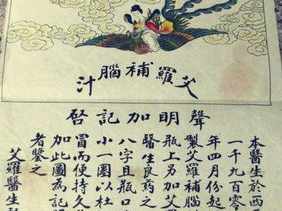 艾羅補腦汁
聲明加記啓
本醫生於西
一千九百零
年四月份起
製艾羅補腦
瓶上另加艾
醫生良藥之
八字且瓶口
小一圖以杜
冒而便持久
加此圖為記
者鑒之
艾羅醫生